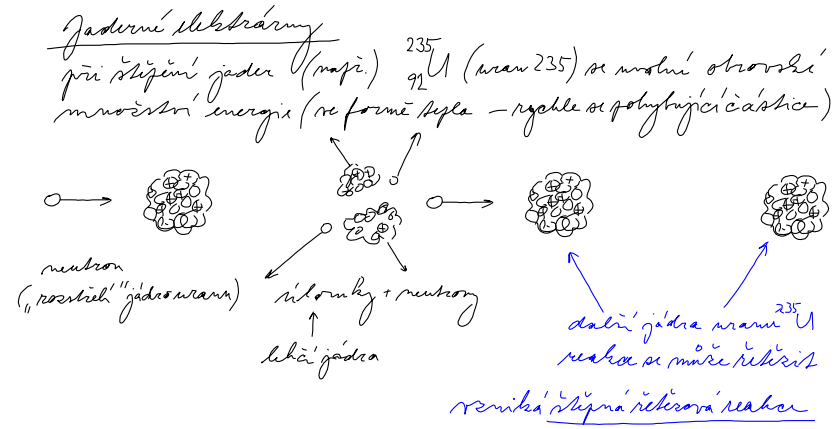 Jaderné elektrárny
při štěpění jader (např.) ²³⁵₉₂U (uran 235) se uvolní obrovské
množství energie (ve formě tepla – rychle se pohybující částice)
neutron
("rozstřelí" jádro uranu)
úlomky + neutrony
lehčí jádra
další jádra uranu ²³⁵U
reakce se může řetězit
vzniká štěpná řetězová reakce